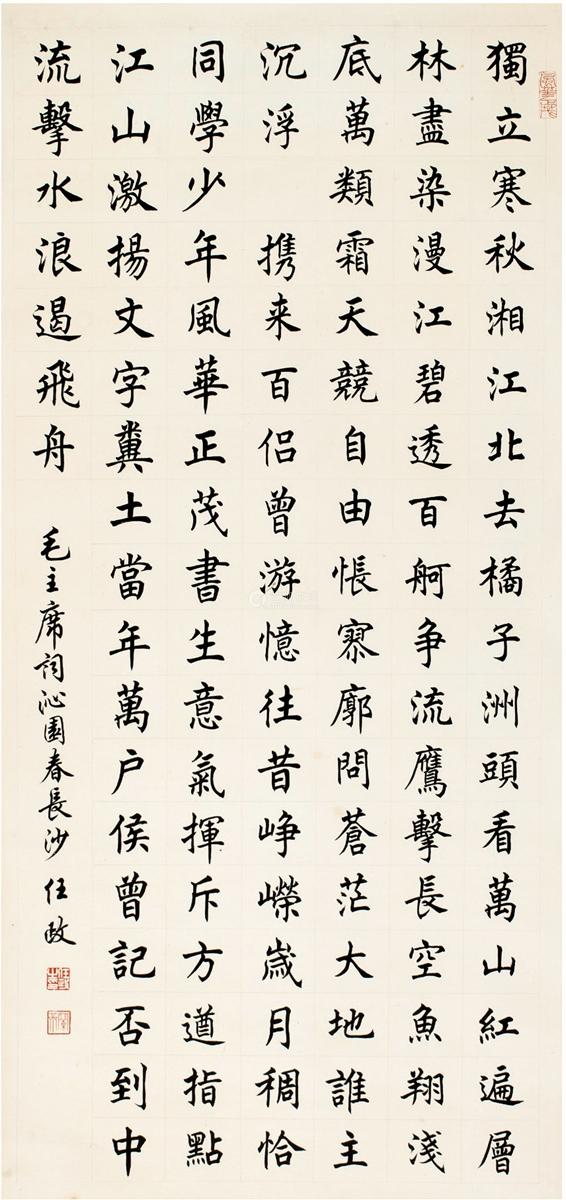 獨立寒秋湘江北去橘子洲頭看萬山紅遍層
林盡染漫江碧透百舸争流鷹擊長空魚翔淺
底萬類霜天競自由悵寥廓問蒼茫大地誰主
沉浮　携来百侣曾游憶往昔峥嶸歲月稠恰
同學少年風華正茂書生意氣揮斥方遒指點
江山激揚文字糞土當年萬户侯曾記否到中
流擊水浪遏飛舟
毛主席詞沁園春長沙 任政